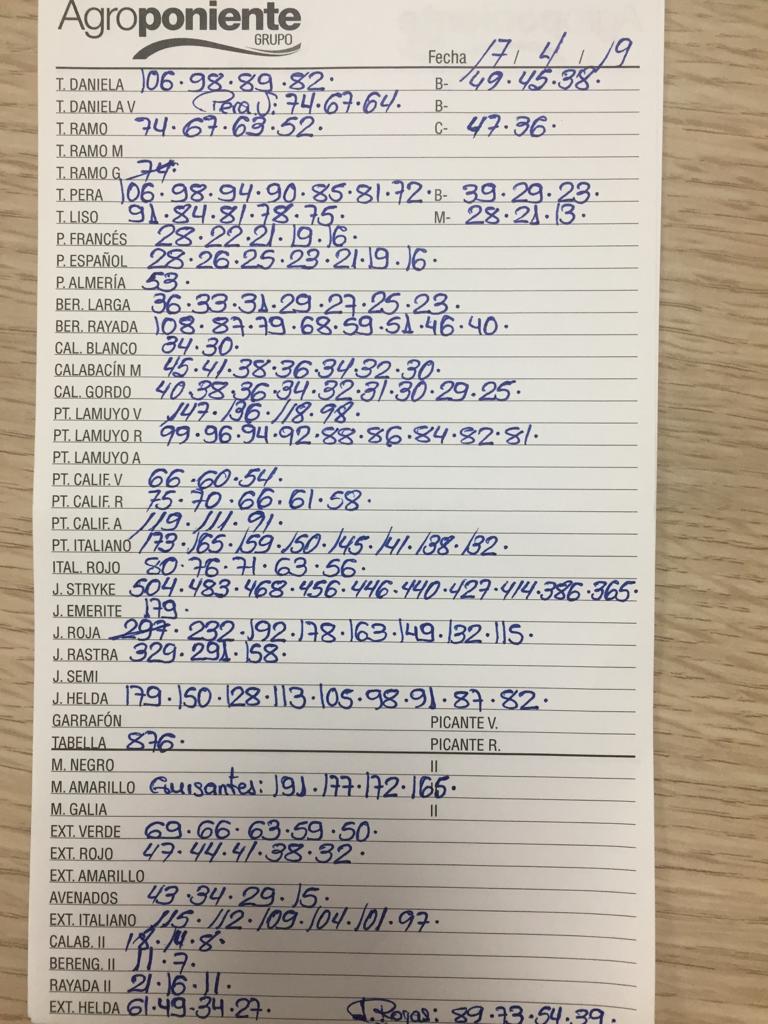 Agroponiente
GRUPO
Fecha 17 / 4 / 19
T. DANIELA 106·98·89·82· B- 49·45·38·
T. DANIELA V (Pera V): 74·67·64· B-
T. RAMO 74·67·63·52· C- 47·36·
T. RAMO M
T. RAMO G 74·
T. PERA 106·98·94·90·85·81·72· B- 39·29·23·
T. LISO 91·84·81·78·75· M- 28·21·13·
P. FRANCÉS 28·22·21·19·16·
P. ESPAÑOL 28·26·25·23·21·19·16·
P. ALMERÍA 53·
BER. LARGA 36·33·31·29·27·25·23·
BER. RAYADA 108·87·79·68·59·51·46·40·
CAL. BLANCO 34·30·
CALABACÍN M 45·41·38·36·34·32·30·
CAL. GORDO 40·38·36·34·32·31·30·29·25·
PT. LAMUYO V 147·136·118·98·
PT. LAMUYO R 99·96·94·92·88·86·84·82·81·
PT. LAMUYO A
PT. CALIF. V 66·60·54·
PT. CALIF. R 75·70·66·61·58·
PT. CALIF. A 119·111·91·
PT. ITALIANO 173·165·159·150·145·141·138·132·
ITAL. ROJO 80·76·71·63·56·
J. STRYKE 504·483·468·456·446·440·427·414·386·365·
J. EMERITE 179·
J. ROJA 297·232·192·178·163·149·132·115·
J. RASTRA 329·291·158·
J. SEMI
J. HELDA 179·150·128·113·105·98·91·87·82·
GARRAFÓN PICANTE V.
TABELLA 876· PICANTE R.
M. NEGRO II
M. AMARILLO Guisantes: 191·177·172·165·
M. GALIA II
EXT. VERDE 69·66·63·59·50·
EXT. ROJO 47·44·41·38·32·
EXT. AMARILLO
AVENADOS 43·34·29·15·
EXT. ITALIANO 115·112·109·104·101·97·
CALAB. II 18·14·8·
BERENG. II 11·7·
RAYADA II 21·16·11·
EXT. HELDA 61·49·34·27· J. Rojas: 89·73·54·39·